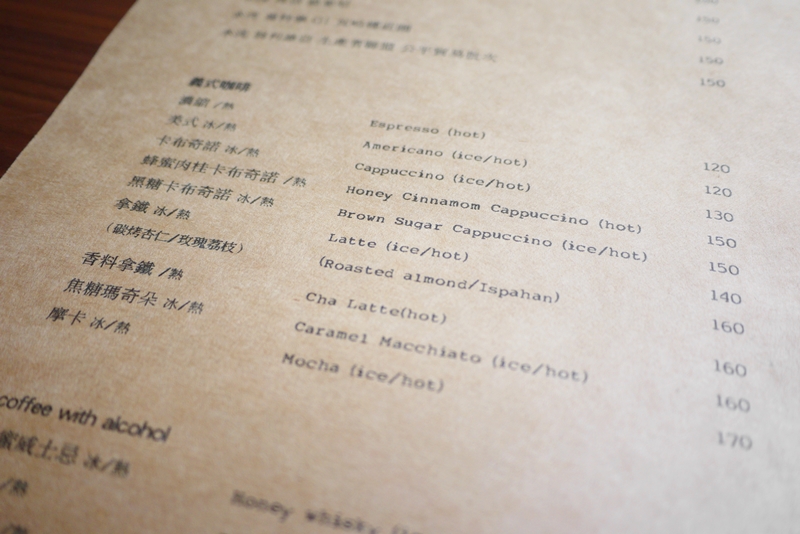 150
150
150
水洗 薇薇特南果 生產者聯盟 公平貿易批次 150
150
義式咖啡
濃縮 /熱 Espresso (hot) 120
美式 冰/熱 Americano (ice/hot) 120
卡布奇諾 冰/熱 Cappuccino (ice/hot) 130
蜂蜜肉桂卡布奇諾 /熱 Honey Cinnamom Cappuccino (hot) 150
黑糖卡布奇諾 冰/熱 Brown Sugar Cappuccino (ice/hot) 150
拿鐵 冰/熱 Latte (ice/hot) 140
(碳烤杏仁/玫瑰荔枝) (Roasted almond/Ispahan) 160
香料拿鐵 /熱 Cha Latte(hot) 160
焦糖瑪奇朵 冰/熱 Caramel Macchiato (ice/hot) 160
摩卡 冰/熱 Mocha (ice/hot) 170
coffee with alcohol
蜜威士忌 冰/熱 Honey whisky
/熱